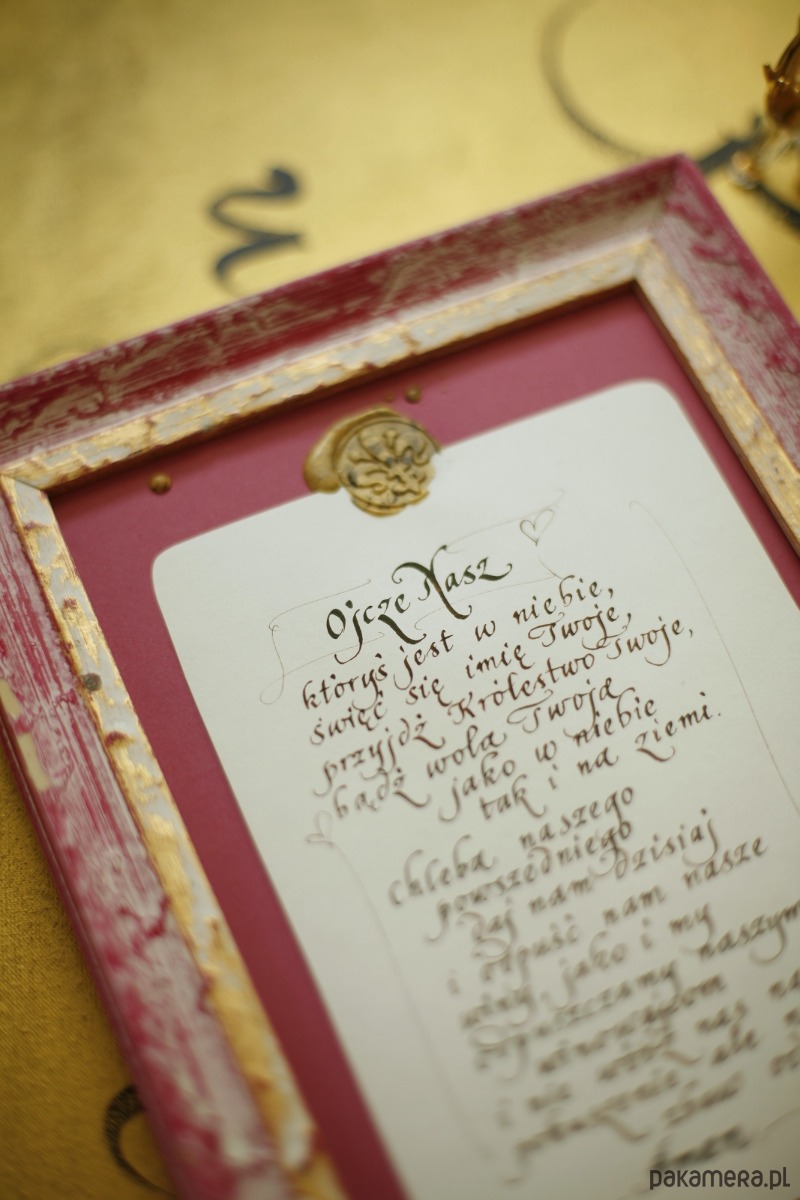 n
Ojcze Nasz
któryś jest w niebie,
święć się imię Twoje,
przyjdź Królestwo Twoje,
bądź wola Twoja
jako w niebie
tak i na ziemi.
chleba naszego
powszedniego
daj nam dzisiaj
i odpuść nam nasze
winy, jako i my
odpuszczamy naszym
winowajcom
i nie wódź nas na
pokuszenie, ale
zbaw
Amen
pakamera.pl